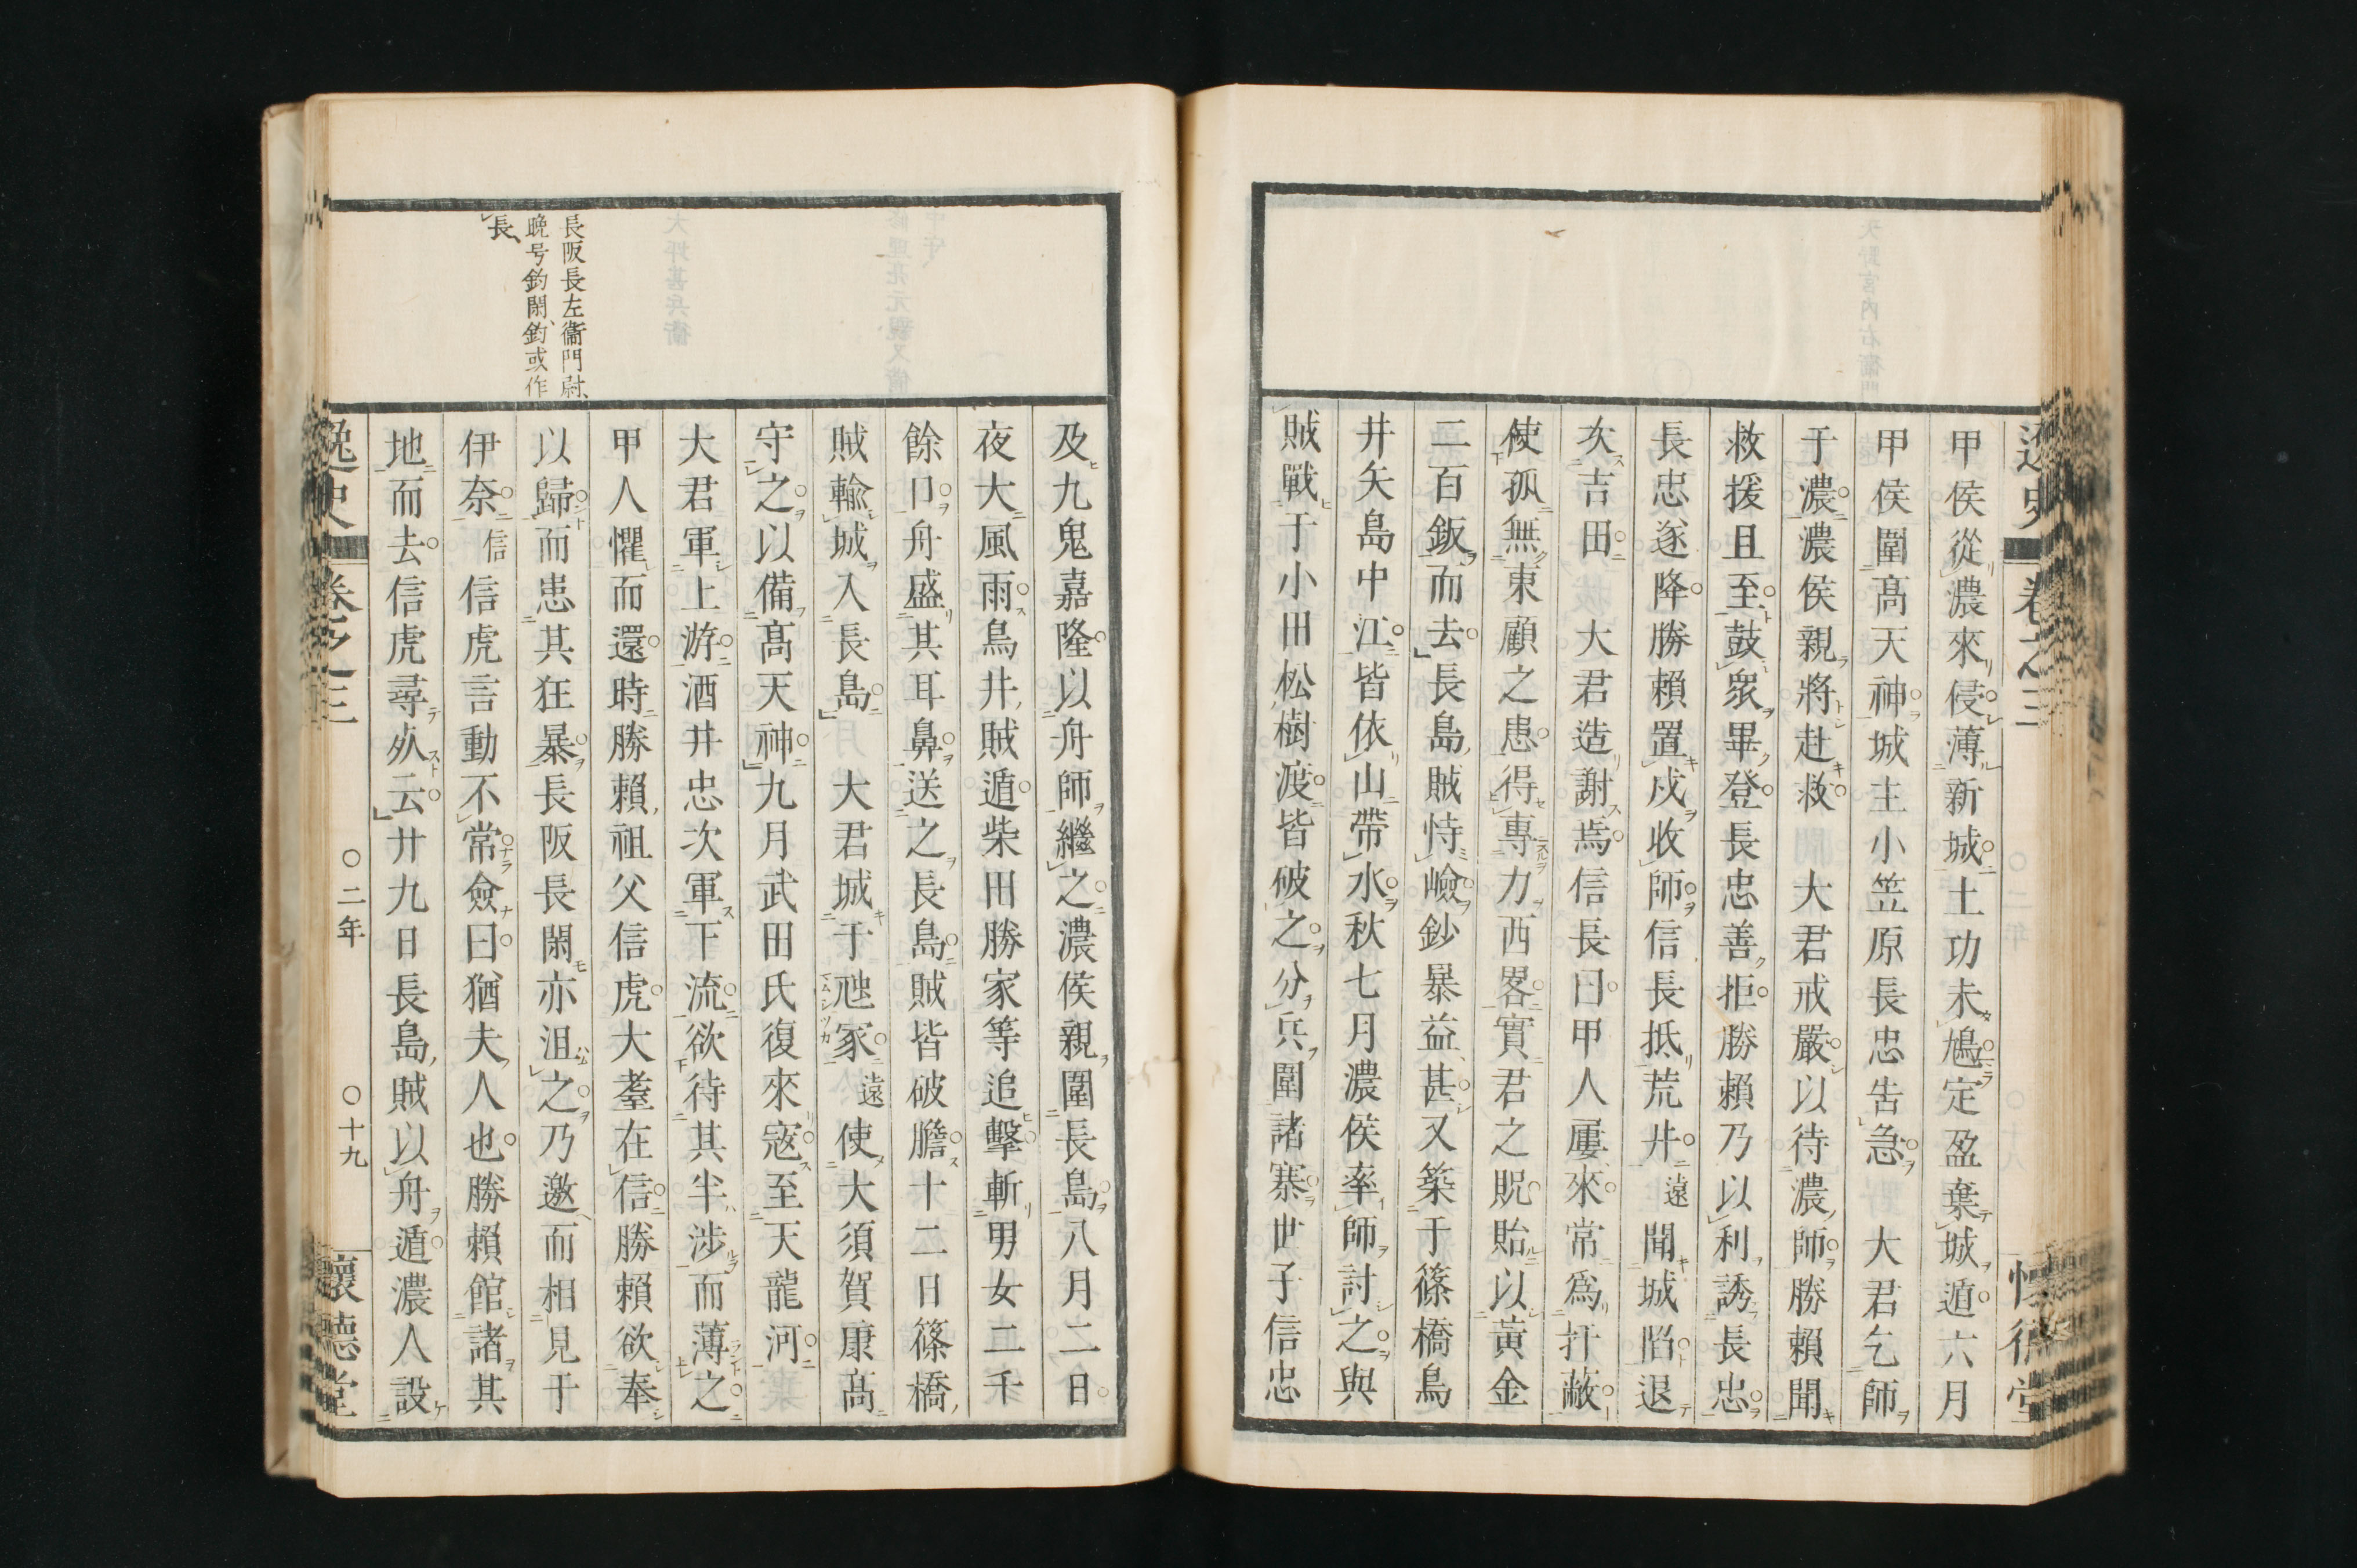 甲侯從濃來侵薄新城土功未鳩定盈棄城遁六月
甲侯圍髙天神城主小笠原長忠告急大君乞師
于濃濃侯親將赴救大君戒嚴以待濃師勝賴聞
救援且至鼓衆畢登長忠善拒勝賴乃以利誘長忠
長忠遂降勝賴置戍收師信長抵荒井遠聞城陷退
次吉田大君造謝焉信長曰甲人屢來常爲扞蔽
使孤無東顧之患得專力西畧實君之貺貽以黃金
二百鈑而去長島賊恃嶮鈔暴益甚又築于篠橋鳥
井矢島中江皆依山帶水秋七月濃侯率師討之與
賊戰于小田松樹渡皆破之分兵圍諸寨世子信忠
及九鬼嘉隆以舟師繼之濃侯親圍長島八月二日
夜大風雨鳥井賊遁柴田勝家等追擊斬男女二千
餘口舟盛其耳鼻送之長島賊皆破膽十二日篠橋
賊輸城入長島大君城于冢遠使大須賀康髙
守之以備髙天神九月武田氏復來寇至天龍河
大君軍上游酒井忠次軍下流欲待其半涉而薄之
甲人懼而還時勝賴祖父信虎大耋在信勝賴欲奉
以歸而患其狂暴長阪長閑亦沮之乃邀而相見于
伊奈信信虎言動不常僉曰猶夫人也勝賴館諸其
地而去信虎尋云廾九日長島賊以舟遁濃人設
長阪長左衞門尉
晚号釣閑釣或作
長
逸史 卷之三 〇二年 〇十九 懷德堂